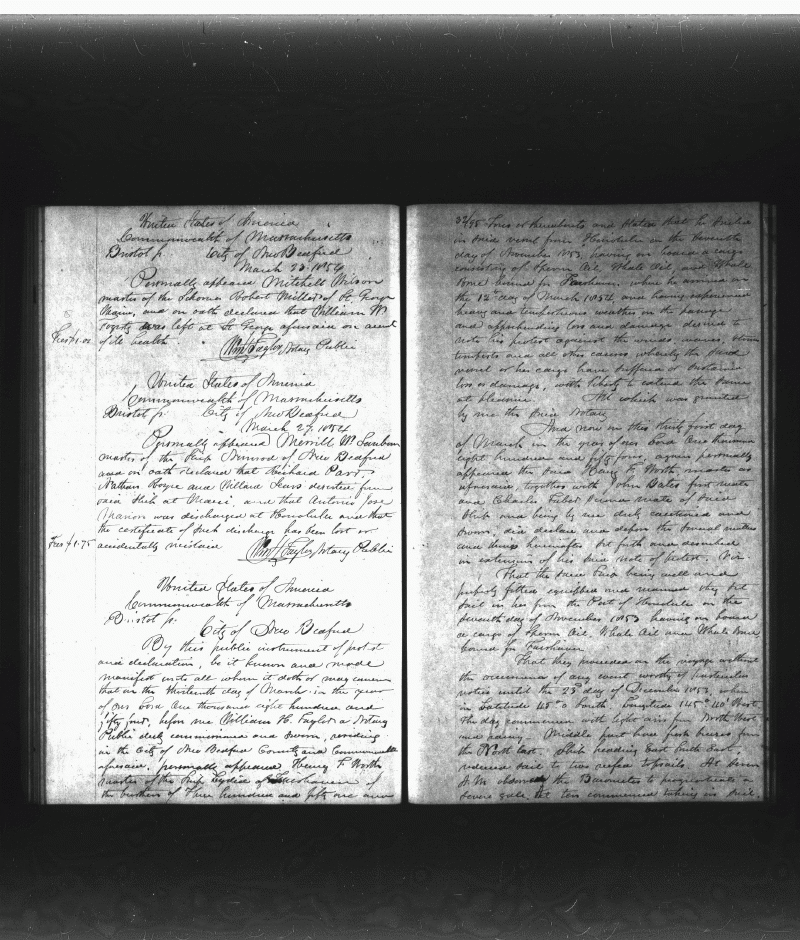 United States of America
Commonwealth of Massachusetts
Bristol ss. City of New Bedford
March 23. 1854
Personally appeared Mitchell Wilson
master of the Schooner Robert Miller of St. George
Maine, and on oath declared that William W.
was left at St George aforesaid on acct
Fees $1.00 of ill health. Wm H Taylor Notary Public
United States of America
Commonwealth of Massachusetts
Bristol ss. City of New Bedford
March 27. 1854
Personally appeared Merrill W. Sanborn
master of the Ship Nimrod of New Bedford
and on oath declared that Richard Parr,
Nathan Boyce and Willard Sears deserted from
said Ship at Maui, and that Antonio Jose
Marion was discharged at Honolulu and that
the certificate of such discharge has been lost or
Fees $1.75 accidentally mislaid Wm H Taylor Notary Public
United States of America
Commonwealth of Massachusetts
Bristol ss.
City of New Bedford
By this public instrument of protest
and declaration, be it known and made
manifest unto all whom it doth or may concern
that on the thirteenth day of March in the year
of our Lord one thousand eight hundred and
fifty four, before me William H. Taylor a Notary
Public duly commissioned and sworn, residing
in the City of New Bedford County and Commonwealth
aforesaid. personally appeared Henry F. Worth
master of the Ship Lydia of Fairhaven of
the burthen of Three hundred and fifty one and
32/95 Tons or thereabouts and states that he sailed
in said vessel from Honolulu on the seventh
day of November 1853 having on board a cargo
consisting of Sperm Oil, Whale Oil, and Whale
Bone bound for Fairhaven, where he arrived on
the 12th day of March 1854, and having experienced
heavy and tempestuous weather on the passage
and apprehending loss and damage desired to
note his protest against the winds, waves, storms
tempests and all other causes whereby the said
vessel or her cargo have suffered or sustained
loss or damage, with liberty to extend the same
at pleasure. All which was granted
by me the said Notary
And now on this thirty first day
of March in the year of our Lord One thousand
eight hundred and fifty four, again personally
appeared the said Henry F. Worth master as
aforesaid, together with John Bates first mate
and Charles Second mate of said
Ship and being by me duly cautioned and
sworn, did declare and depose the several matters
and things hereinafter set forth and described
in extension of his said note of protest. Viz
That the said Ship being well and
properly fitted equipped and manned they set
sail in her from the Port of Honolulu on the
seventh day of November 1853 having on board
a cargo of Sperm Oil, Whale Oil and Whale Bone
bound for Fairhaven
That they proceeded on the voyage without
the occurrence of any event worthy of particular
notice until the 23d day of December 1853, when
in Latitude 48° South Longitude 145° 40' West.
The day commences with light airs from North West
and rainy. Middle part have fresh breezes from
the North East. Ship heading East South East,
reduced sail to two reefed topsails. At
A.M. observed the Barometer to prognosticate a
severe gale, At ten commenced taking in sail.